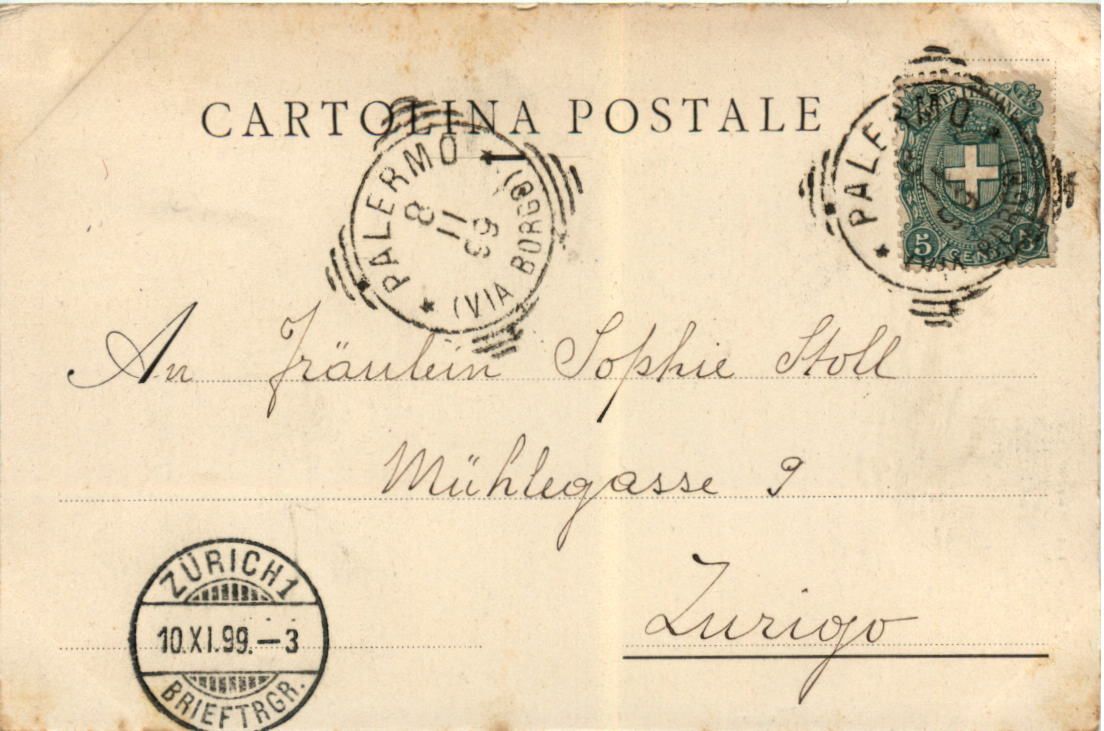 CARTOLINA POSTALE
POSTE ITALIANE
5 CENT. 5
PALERMO
(VIA BORGO)
PALERMO
8 11 99
(VIA BORGO)
An Fräulein Sophie Stoll
Mühlegasse 9
Zurigo
ZÜRICH 1
10.XI.99.–3
BRIEFTRGR.